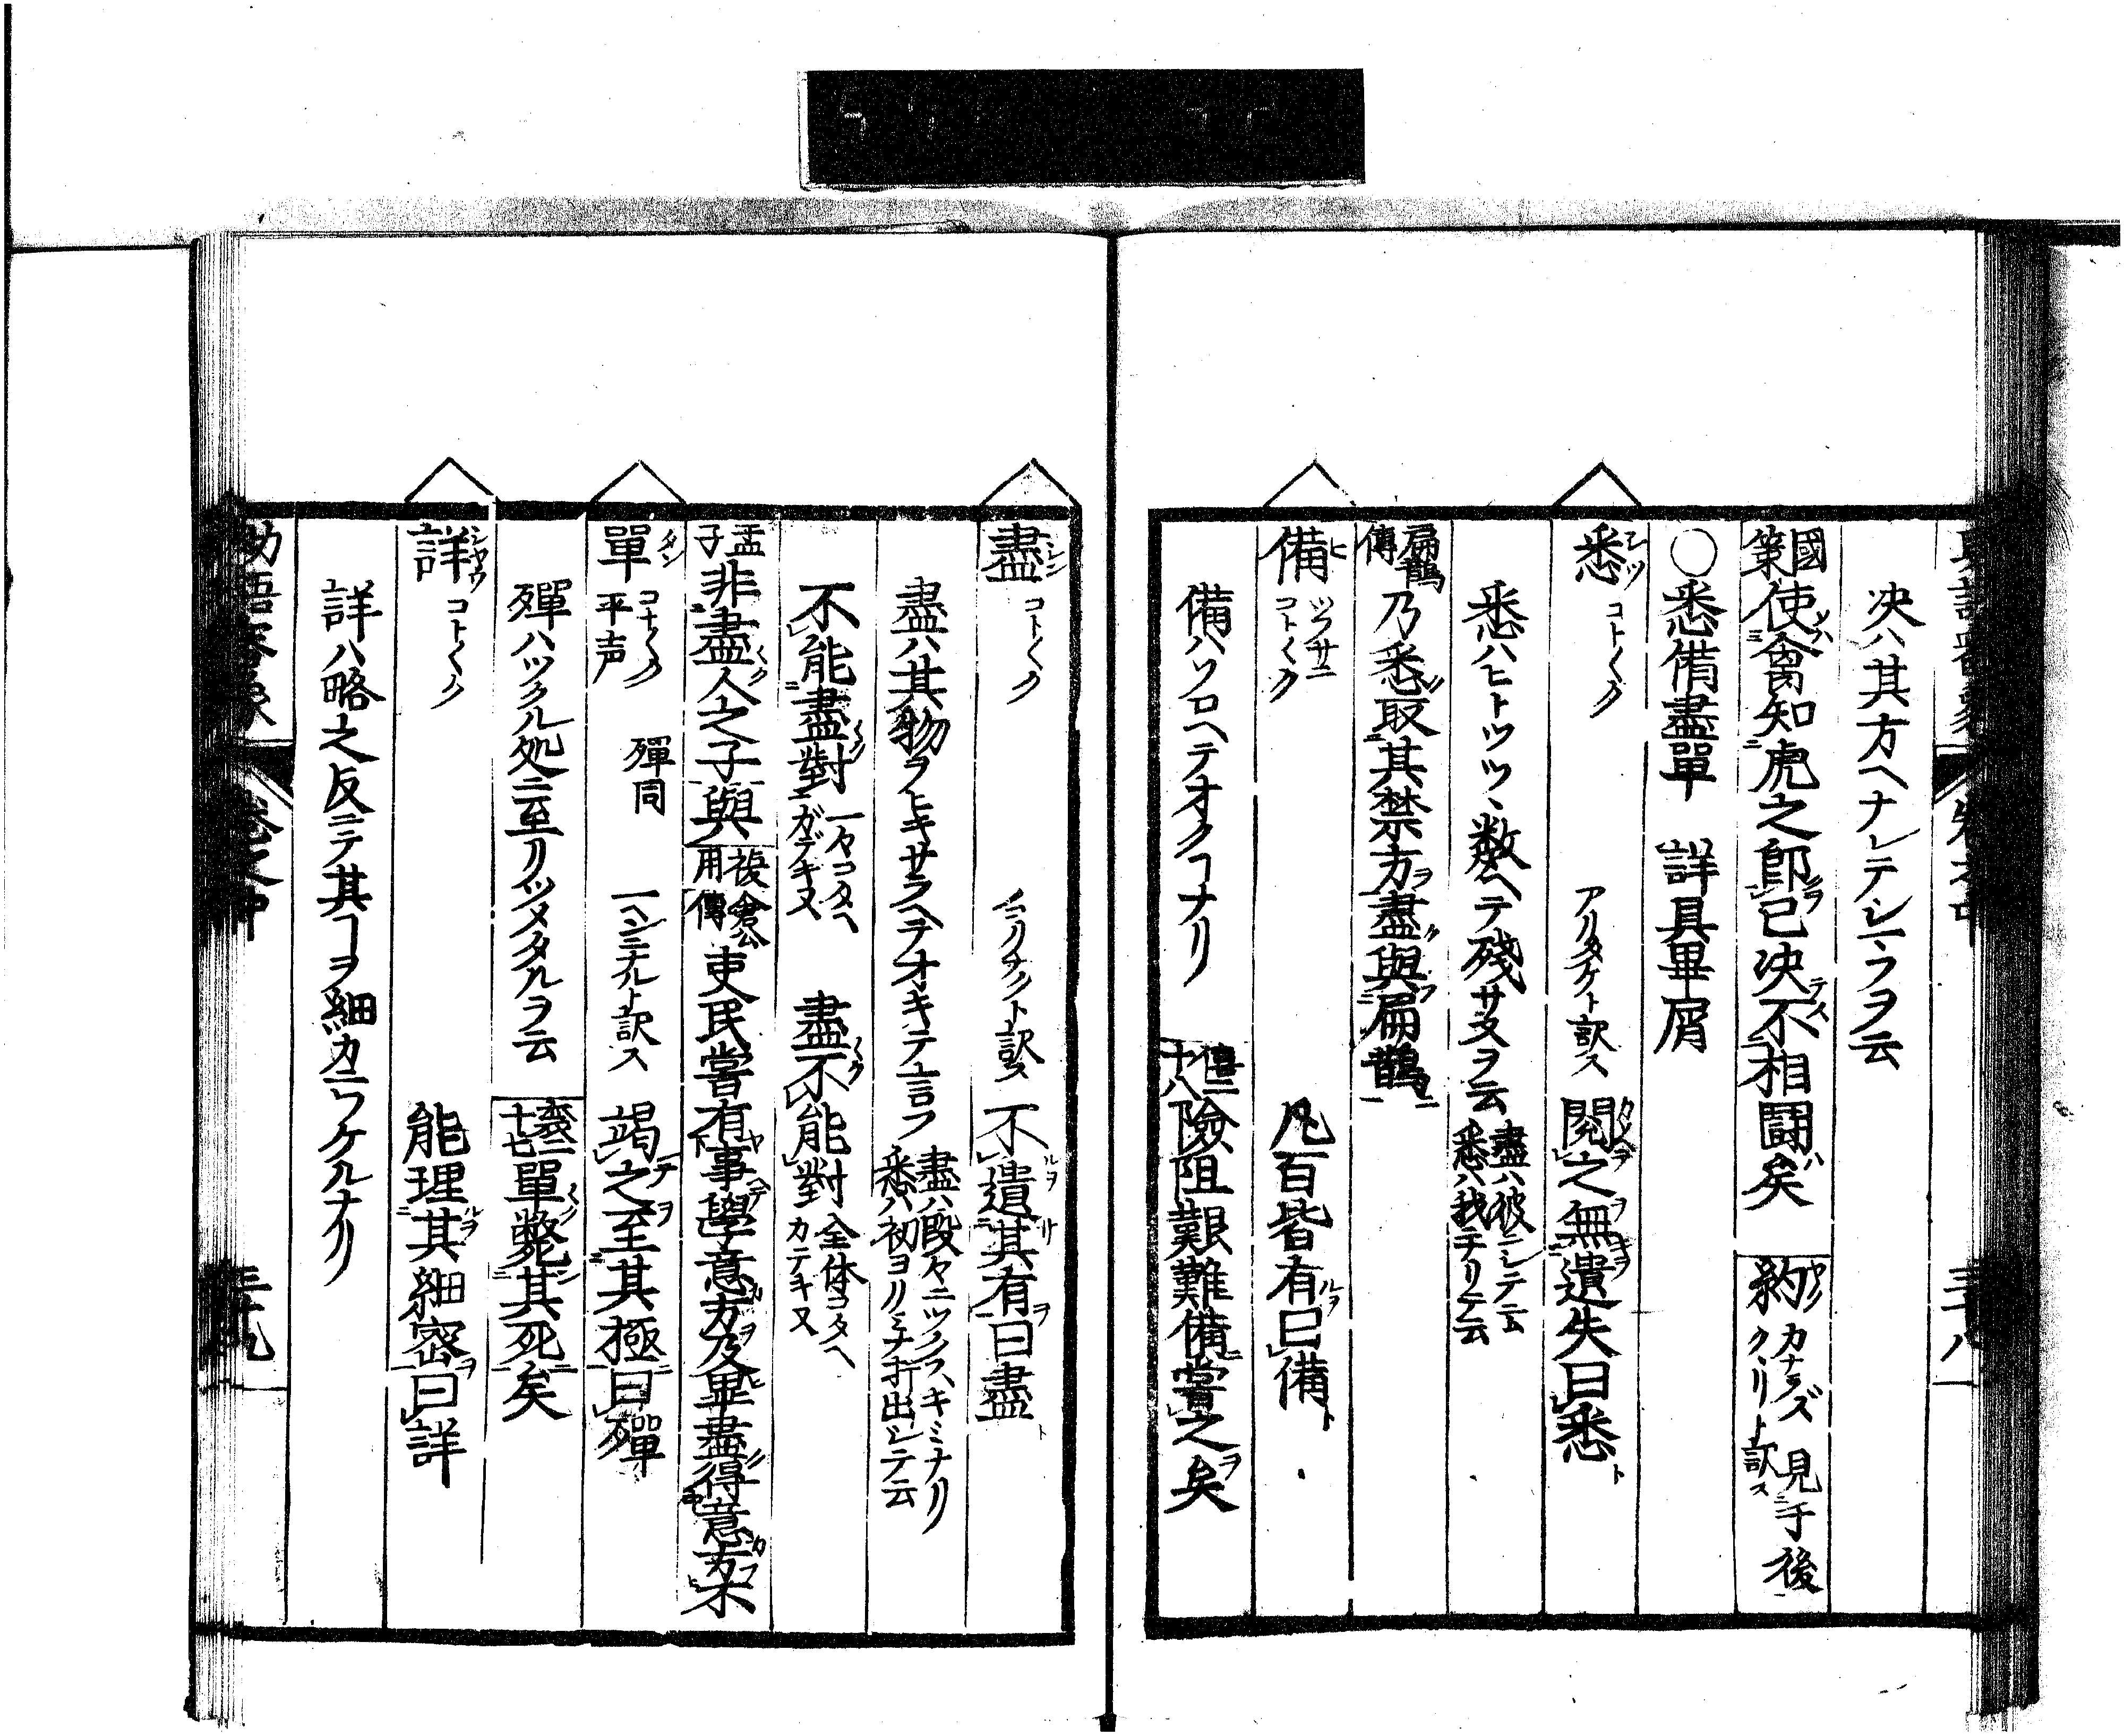 决ハ其方ヘナレテシマフヲ云
國策 使禽知虎之即己决不相鬪矣 約 カナラズ 見于後 クヽリト訳ス
○悉備盡單 詳具畢屑
悉 シツ コト〱ク アリタケト訳ス 閲之無遺失曰悉
悉ハヒトツヅヽ数ヘテ殘サヌヲ云 盡ハ彼ニシテ云 悉ハ我ヨリテ云
扁鵲傳 乃悉取其禁方盡與扁鵲
備 ヒ ツブサニ コト〱ク 凡百皆有曰備
備ハソロヘテオクコナリ 僖二十八 險阻艱難備嘗之矣
盡 シン コト〱ク ノコリナクト訳ス 不遺其有曰盡
盡ハ其物ヲヒキサラヘテオキテ言フ 盡ハ段々ニツクスキミナリ 悉ハ初ヨリミナ打出シテ云
不能盡對 一々コタヘガデキヌ 盡不能對 全体コタヘカデキヌ
孟子 非盡人之子與 複用 倉公傳 吏民嘗有事學意方及畢盡得意方不
單 タン コト〱ク 平声 殫同 一ヘンニナルト訳ス 竭之至其極曰殫
殫ハツクル処ニ至リツメタルヲ云 襄二十七 單斃其死矣
詳 シヤウ コト〱ク 能理其細密曰詳
詳ハ略之反ニテ其コヲ細カニワケルナリ